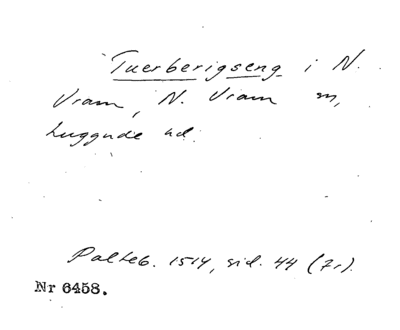 Tuerberigseng i N.
Vram, N. Vram sn,
Luggude hd.
Palteb. 1514, sid. 44 (71).
Nr 6458.